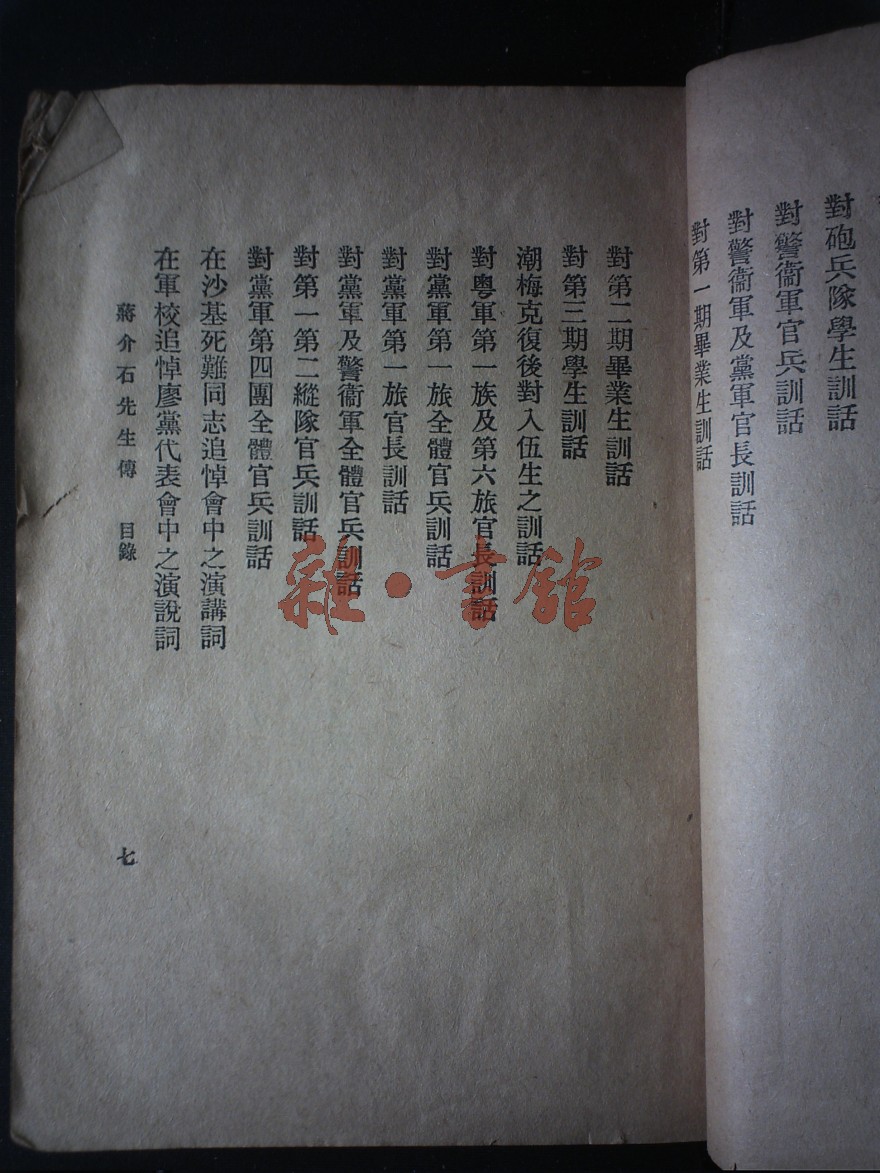 對砲兵隊學生訓話
對警衞軍官兵訓話
對警衞軍及黨軍官長訓話
對第一期畢業生訓話
對第二期畢業生訓話
對第三期學生訓話
潮梅克復後對入伍生之訓話
對粵軍第一族及第六旅官長訓話
對黨軍第一旅全體官兵訓話
對黨軍第一旅官長訓話
對黨軍及警衞軍全體官兵訓話
對第一第二縱隊官兵訓話
對黨軍第四團全體官兵訓話
在沙基死難同志追悼會中之演講詞
在軍校追悼廖黨代表會中之演說詞
蔣介石先生傳 目錄
七
雜·書館